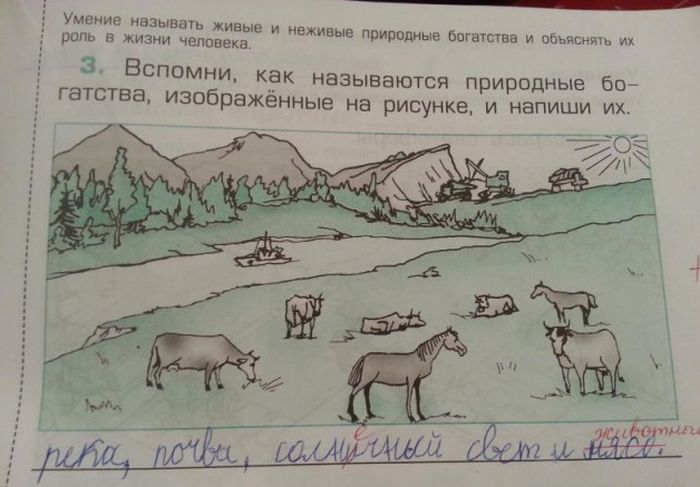 Умение называть живые и неживые природные богатства и объяснять их
роль в жизни человека.
3. Вспомни, как называются природные бо-
гатства, изображённые на рисунке, и напиши их.
животные
река, почва, солнечный свет и мясо.